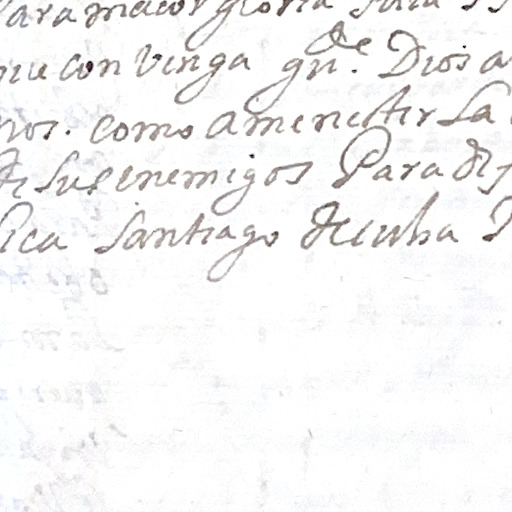 Para maior gloria suia
que convenga gu.de Dios a
nos. como a menester la
de sus enemigos Para
ica Santiago de cuba